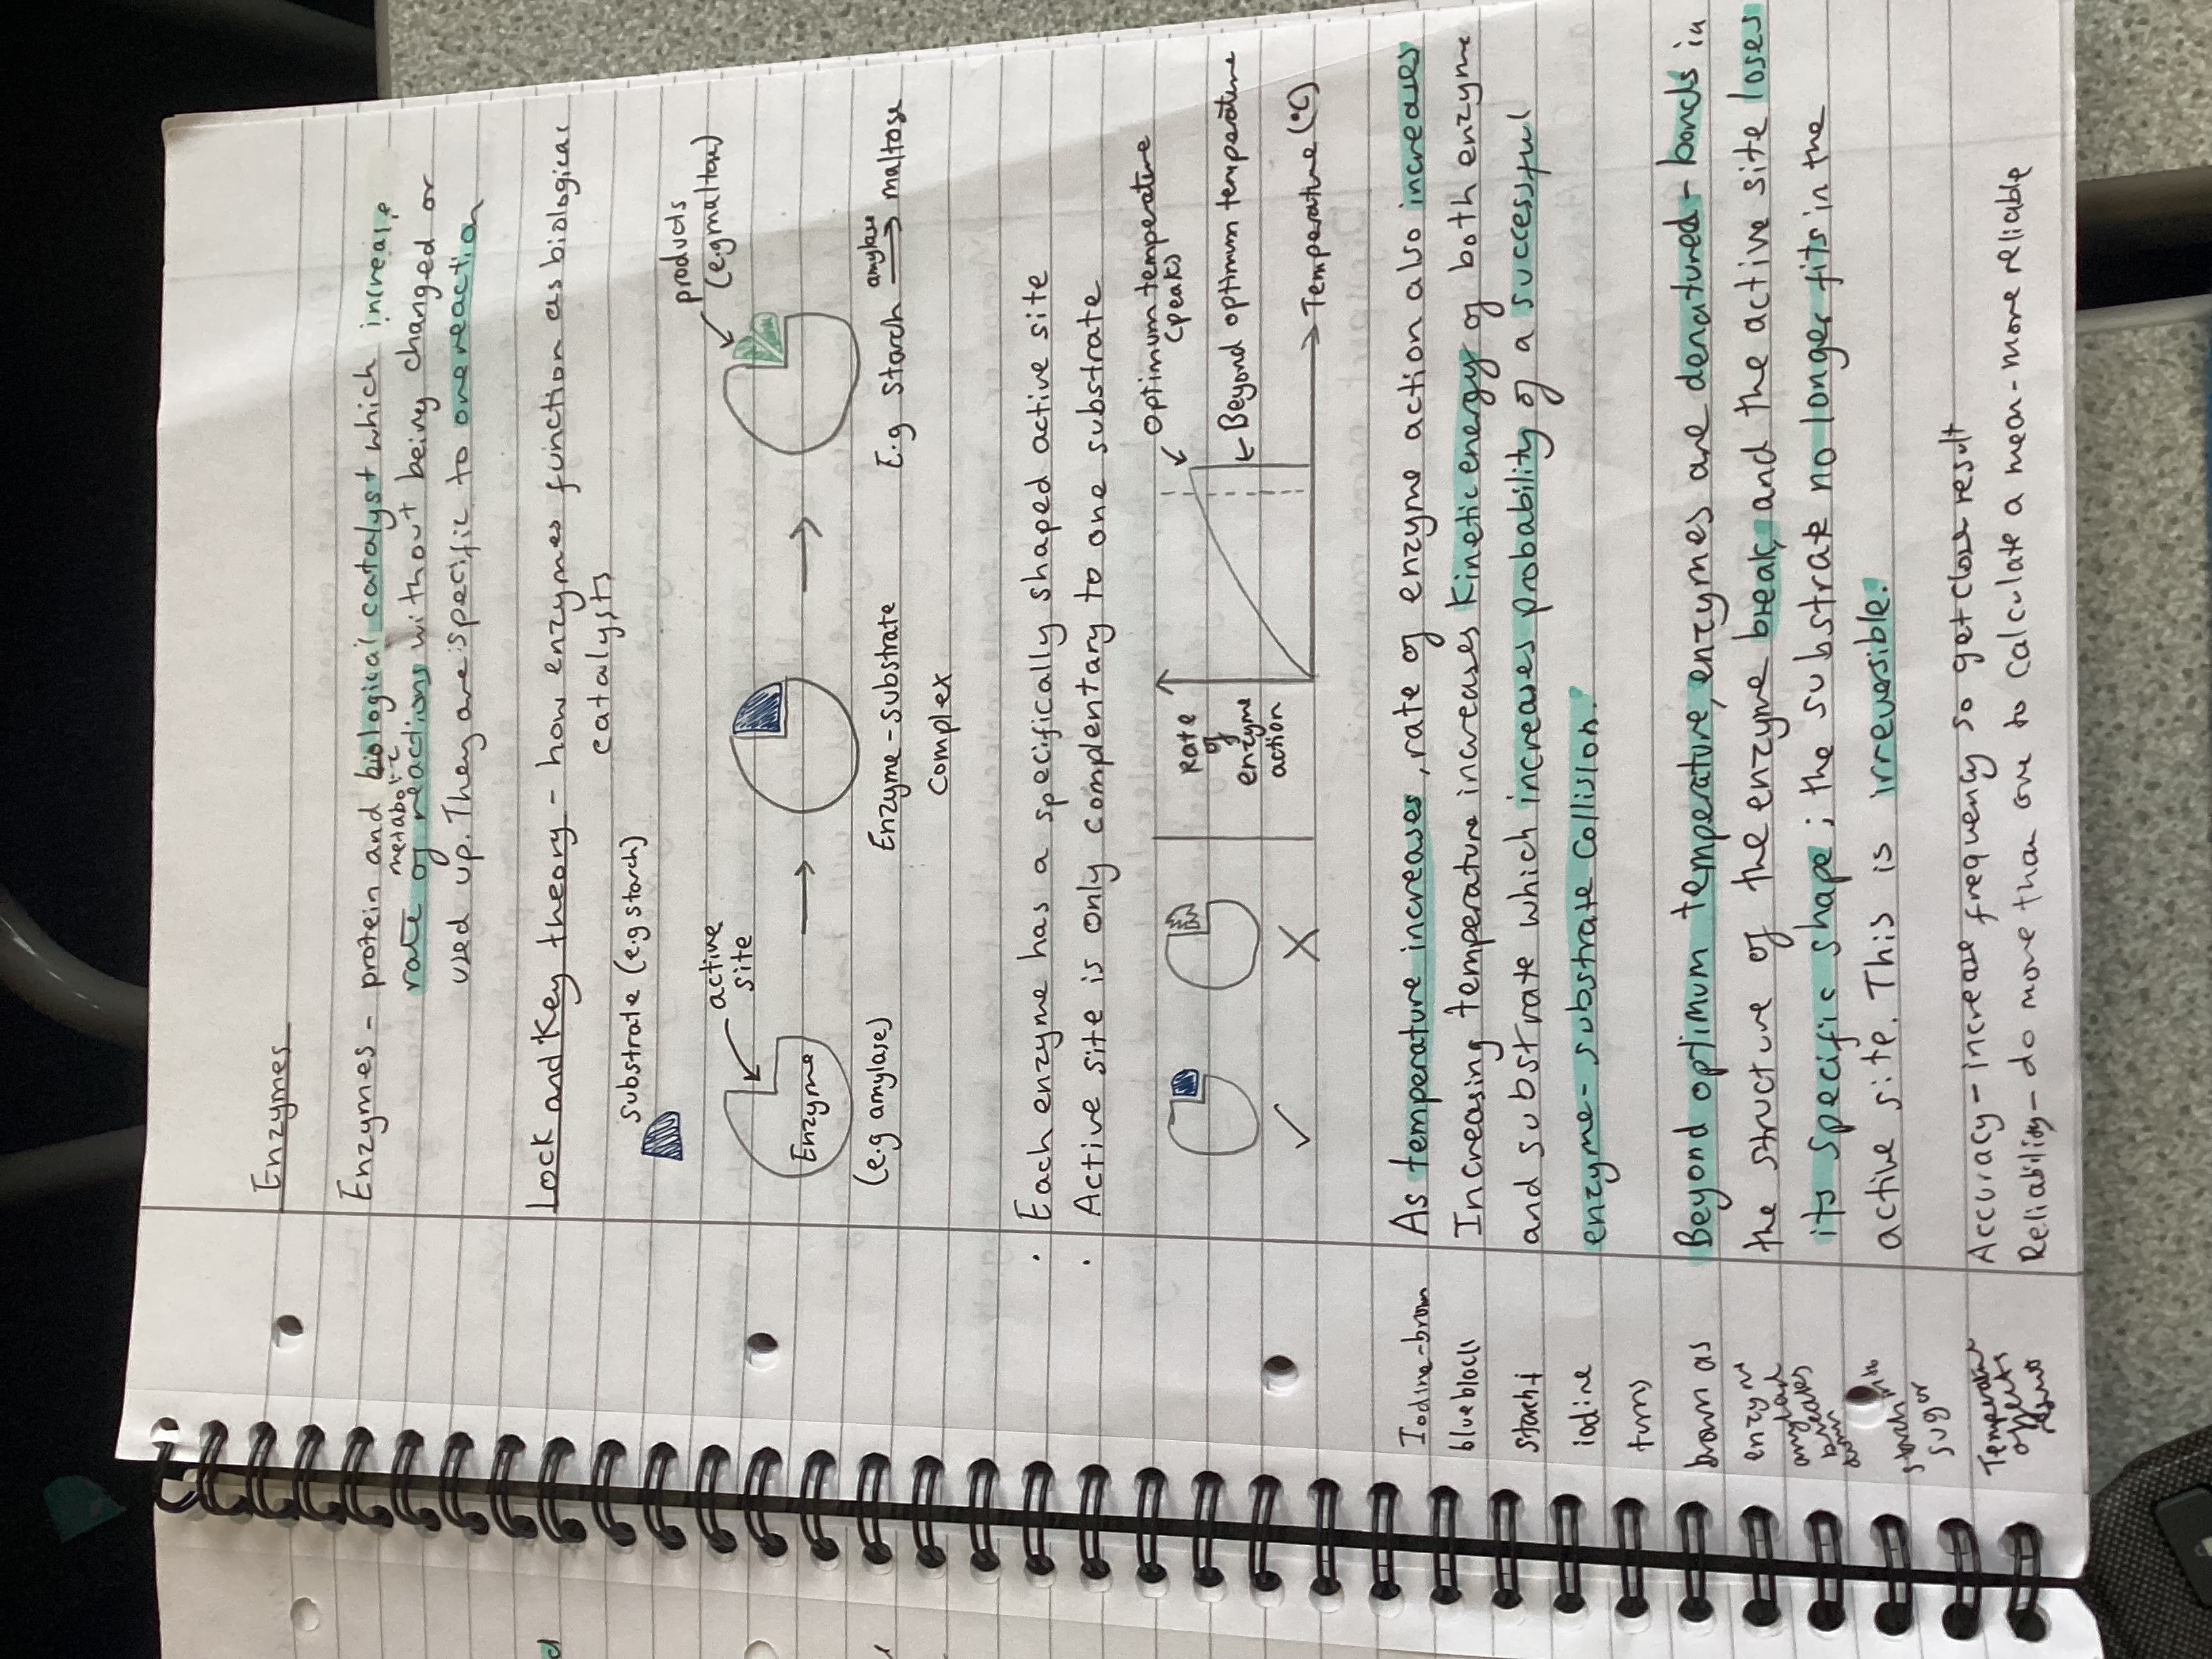 Enzymes
Enzymes - protein and biological catalyst which increase
metabolic
rate of reactions without being changed or
used up. They are specific to one reaction
Lock and Key theory - how enzymes function as biological
catalysts
substrate (e.g starch)
products
(e.g maltose)
active
site
Enzyme
(e.g amylase)
Enzyme-substrate
complex
amylase
E.g starch → maltose
· Each enzyme has a specifically shaped active site
· Active site is only complentary to one substrate
✓
X
Rate
of
enzyme
action
optimum temperature
(peaks)
Beyond optimum temperature
Temperature (°C)
As temperature increases, rate of enzyme action also increases
Increasing temperature increases kinetic energy of both enzyme
and substrate which increases probability of a successful
enzyme-substrate collision.
Beyond optimum temperature, enzymes are denatured - bonds in
the structure of the enzyme break, and the active site loses
its specific shape; the substrate no longer fits in the
active site. This is irreversible.
Accuracy - increase frequency so get closer result
Reliability - do more than one to calculate a mean - more reliable
Iodine - brown
blue black
starch +
iodine
turns
brown as
enzyme
breaks
down
starch into
sugar
Temperature
affects